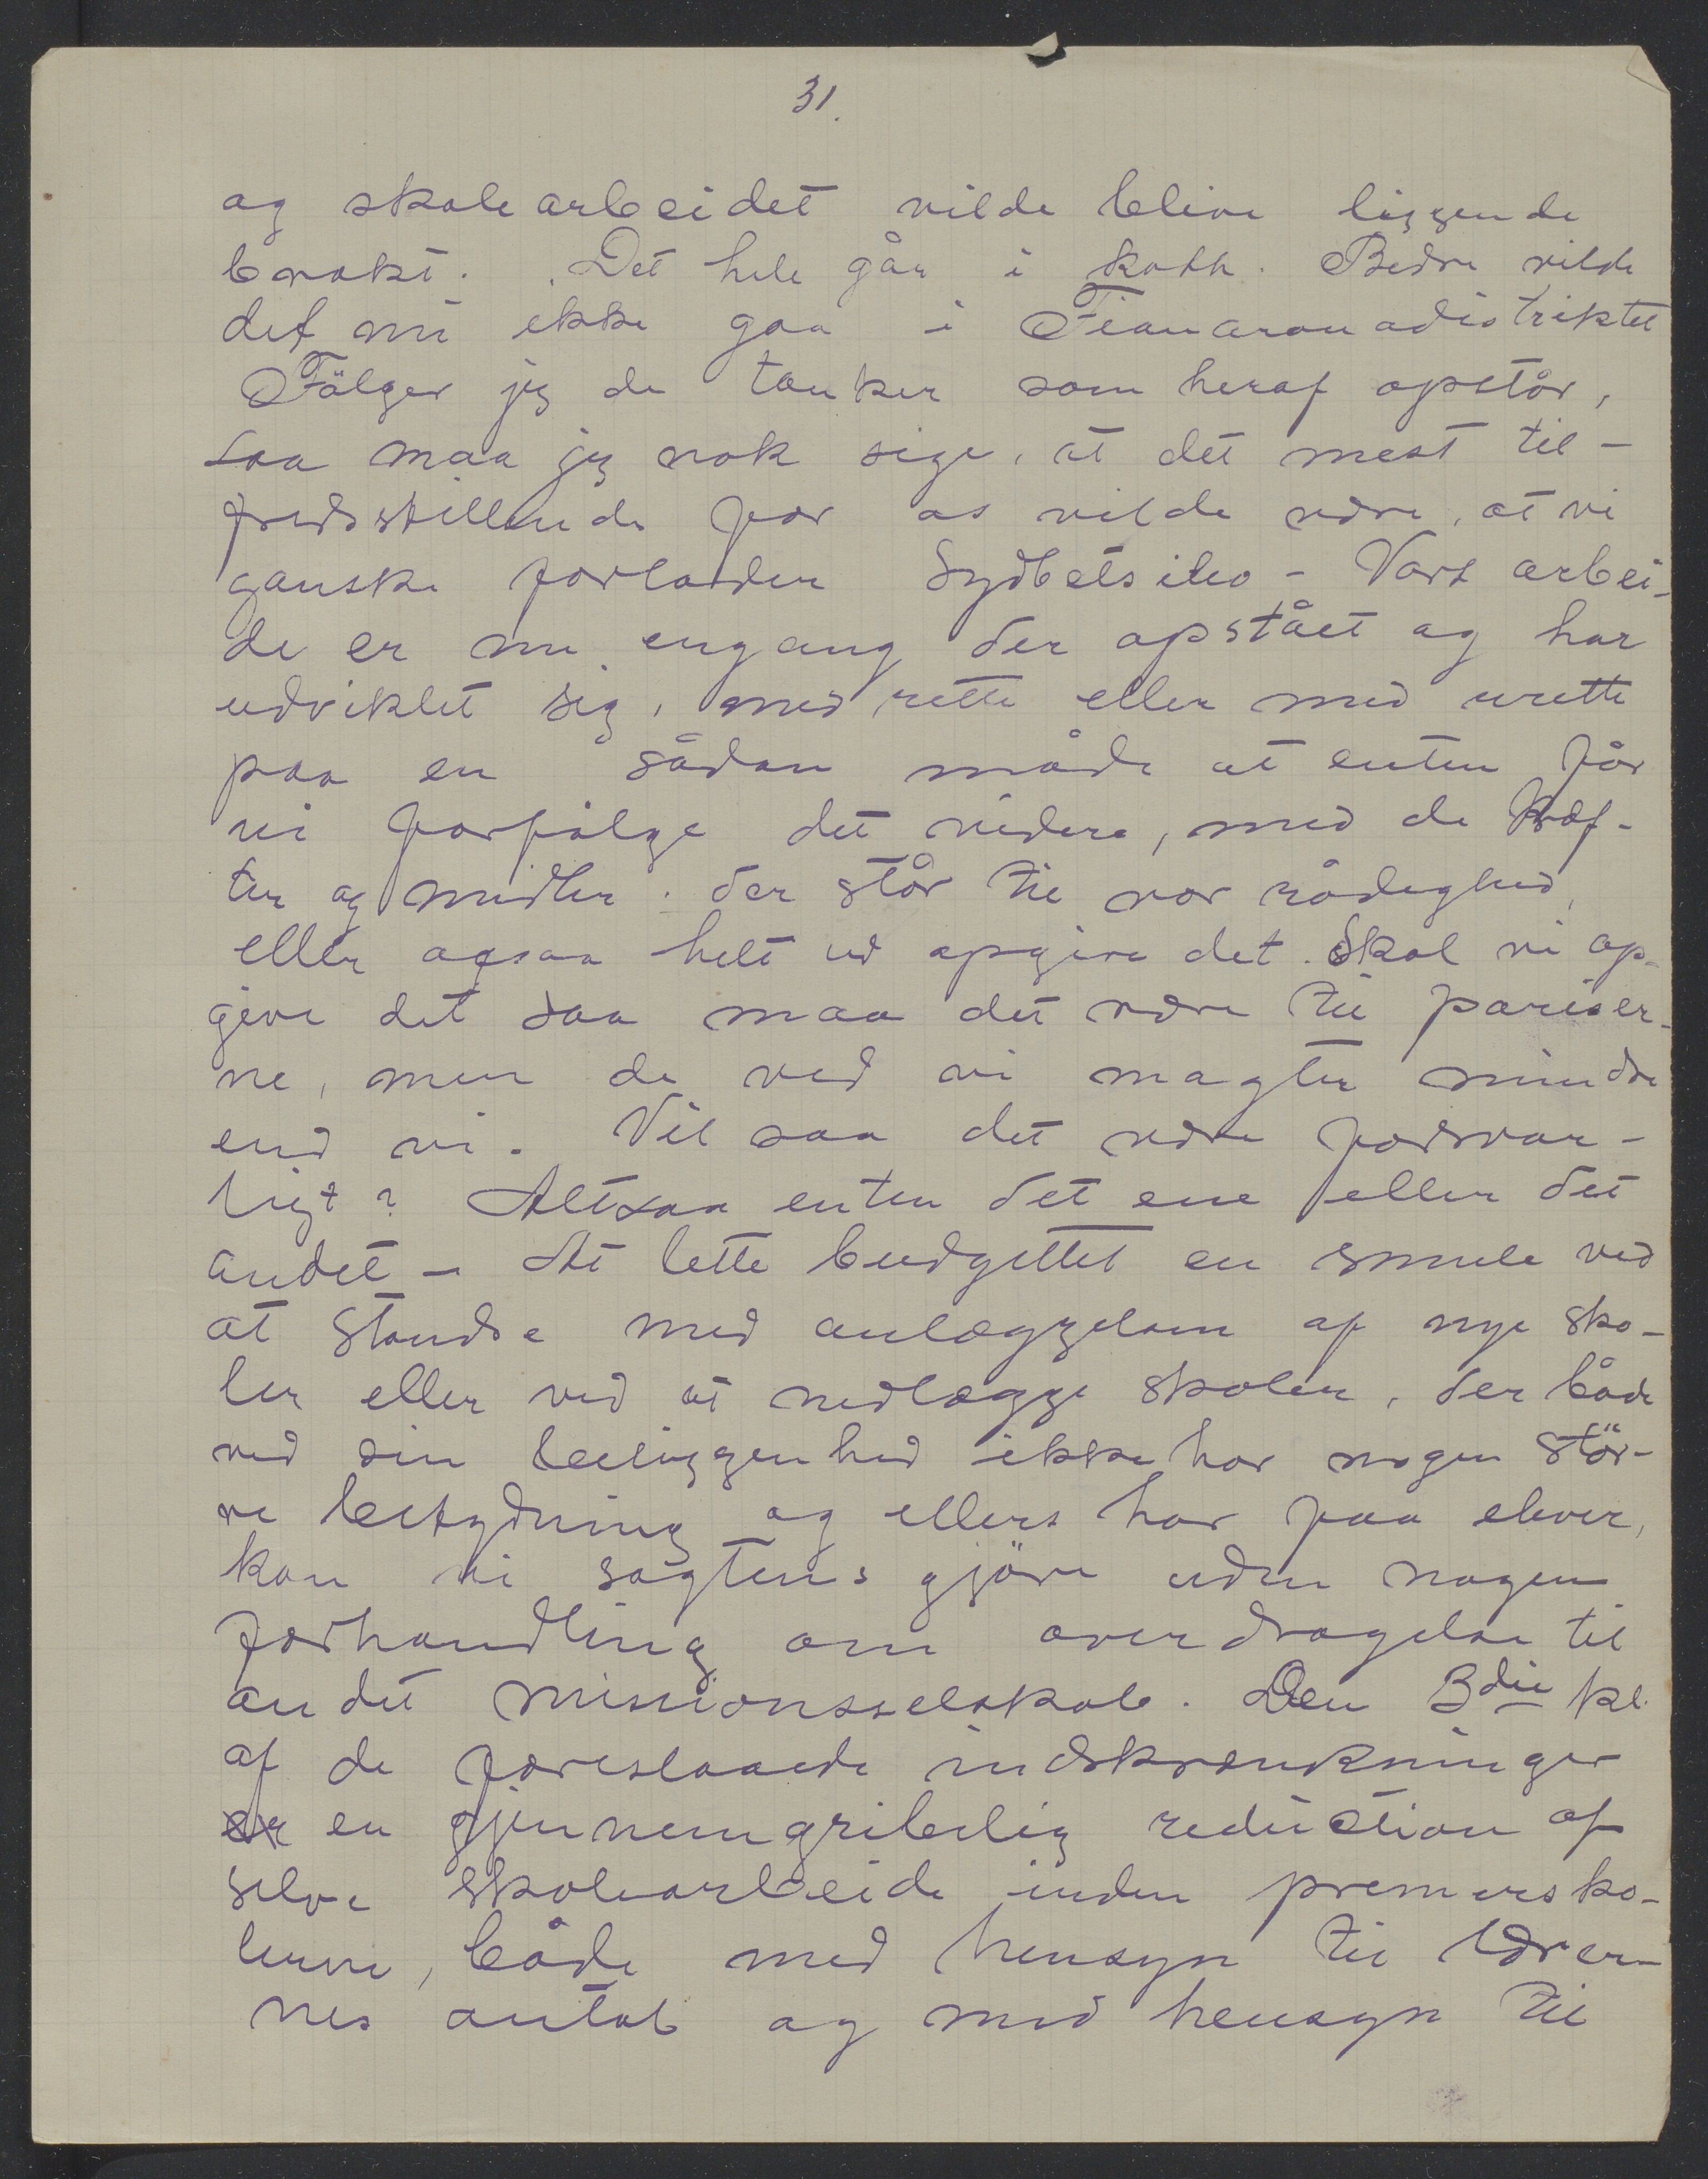 31.
og skolearbeidet vilde blive liggende
brakt. Det hele går i kath. Bedre vilde
det nu ikke gaa i Fianaranadistriktet
Fölger jeg de tanker som heraf opstår,
saa maa jeg nok sige, at det mest til-
fredsstillende for os vilde være, at vi
ganske forlader Sydbetsileo - Vort arbei-
de er nu engang der opstået og har
udviklet sig, med rette eller med urette
paa en sådan måde at enten får
vi forfølge det videre, med de kræf-
ter og midler der står til vor rådighed,
eller ogsaa helt ud opgive det. Skal vi op-
give det saa maa det være til pariser-
ne, men de ved vi magter mindre
end vi. Vil saa det være forsvar-
ligt? Altsaa enten det ene eller det
andet - At lette budgettet en smule ved
at standse med anlæggelsen af nye sko-
ler eller ved at nedlægge skoler, der både
ved sin beliggenhed ikke har nogen stör-
re betydning og ellers har faa elever,
kan vi sagtens gjöre uden nogen
forhandling om overdragelse til
andet missionsselskab. Den 3die kl.
af de foreslaaede indskrænkninger
er en gjennemgribelig reduction af
selve skolearbeide inden premærsko-
lerne, både med hensyn til lærer-
nes antal og med hensyn til